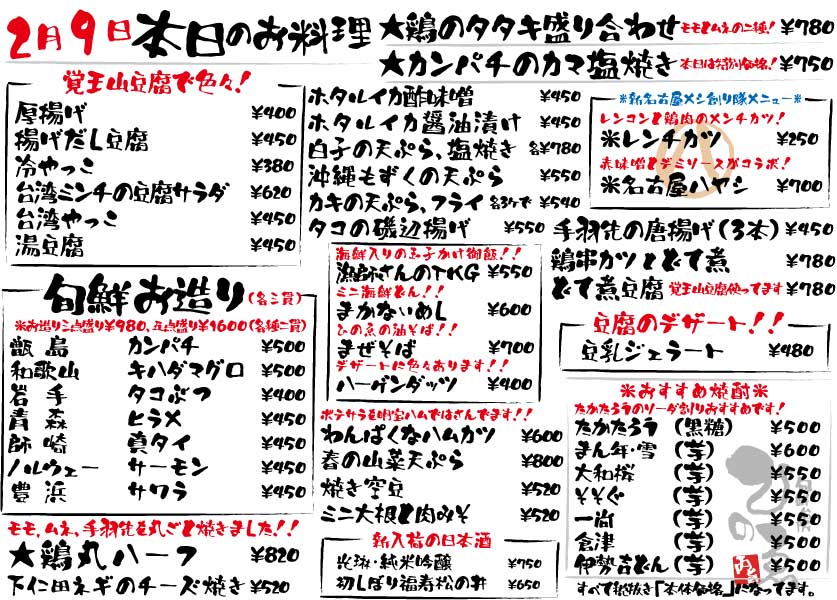 2月9日 本日のお料理
★鶏のタタキ盛り合わせ モモとムネの二種! ¥780
★カンパチのカマ塩焼き 本日は特別価格! ¥750
覚王山豆腐で色々!
厚揚げ ¥400
揚げだし豆腐 ¥450
冷やっこ ¥380
台湾ミンチの豆腐サラダ ¥620
台湾やっこ ¥450
湯豆腐 ¥450
旬鮮お造り(各二貫)
※お造り三点盛り¥980、五点盛り¥1600(各種二貫)
甑島 カンパチ ¥500
和歌山 キハダマグロ ¥500
岩手 タコぶつ ¥400
青森 ヒラメ ¥450
師崎 真タイ ¥450
ノルウェー サーモン ¥450
豊浜 サワラ ¥450
モモ、ムネ、手羽先を丸ごと焼きました!!
★鶏丸ハーフ ¥820
下仁田ネギのチーズ焼き ¥520
ホタルイカ酢味噌 ¥450
ホタルイカ醤油漬け ¥450
白子の天ぷら、塩焼き 各¥780
沖縄もずくの天ぷら ¥550
カキの天ぷら、フライ 各3ケで ¥540
タコの磯辺揚げ ¥550
海鮮入りの玉子かけ御飯!!
漁師さんのTKG ¥550
ミニ海鮮どん!!
まかないめし ¥600
ひの魚の油そば!!
まぜそば ¥700
デザートに色々あります!!
ハーゲンダッツ ¥400
ポテサラを明宝ハムではさんでます!!
わんぱくなハムカツ ¥600
春の山菜天ぷら ¥800
焼き空豆 ¥520
ミニ大根と肉みそ ¥520
新入荷の日本酒
純米吟醸 ¥750
初しぼり福寿松の井 ¥650
※新名古屋メシ創り隊メニュー※
レンコンと鶏肉のメンチカツ!
※レンチカツ ¥250
赤味噌とデミソースがコラボ!
※名古屋ハヤシ ¥700
手羽先の唐揚げ(3本) ¥450
鶏串カツとどて煮 ¥780
どて煮豆腐 覚王山豆腐使ってます ¥780
豆腐のデザート!!
豆乳ジェラート ¥480
※おすすめ焼酎※
たかたろうのソーダ割りおすすめです!
たかたろう (黒糖) ¥500
まん年・雪 (芋) ¥600
大和桜 (芋) ¥550
そそぐ (芋) ¥550
一尚 (芋) ¥550
倉津 (芋) ¥500
伊勢吉どん(芋) ¥550
すべて税抜き「本体価格」になってます。